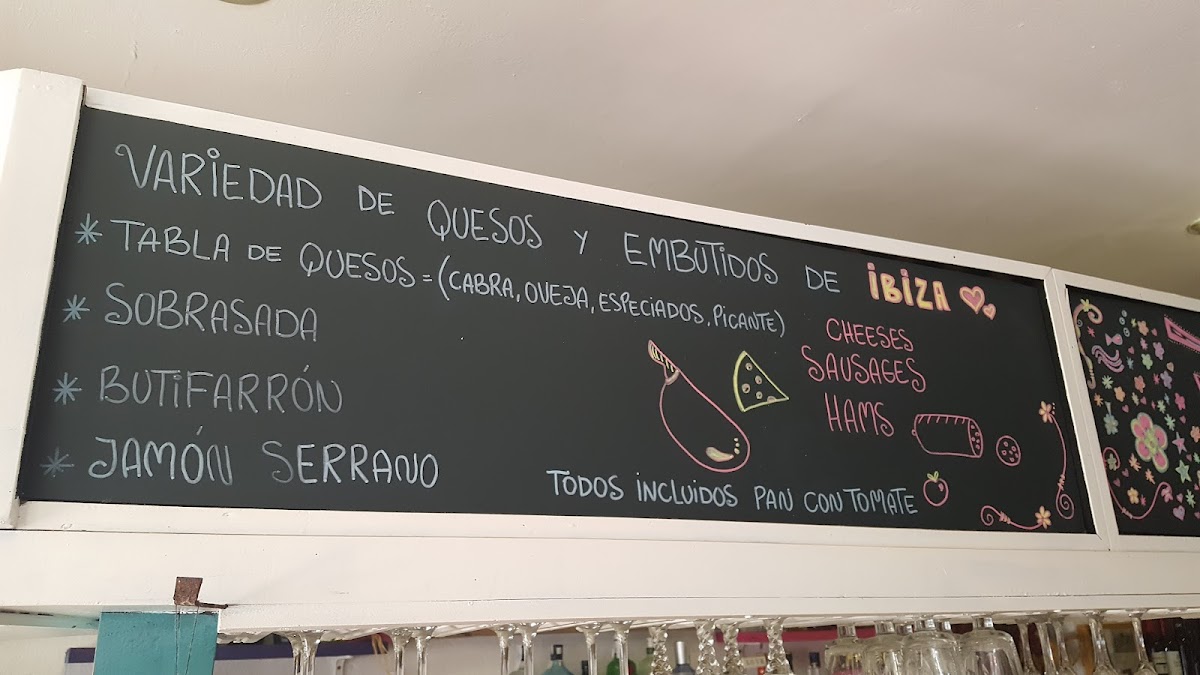 VARIEDAD DE QUESOS Y EMBUTIDOS DE IBIZA
* TABLA DE QUESOS = (CABRA, OVEJA, ESPECIADOS, PICANTE)
* SOBRASADA
* BUTIFARRÓN
* JAMÓN SERRANO
CHEESES
SAUSAGES
HAMS
TODOS INCLUIDOS PAN CON TOMATE